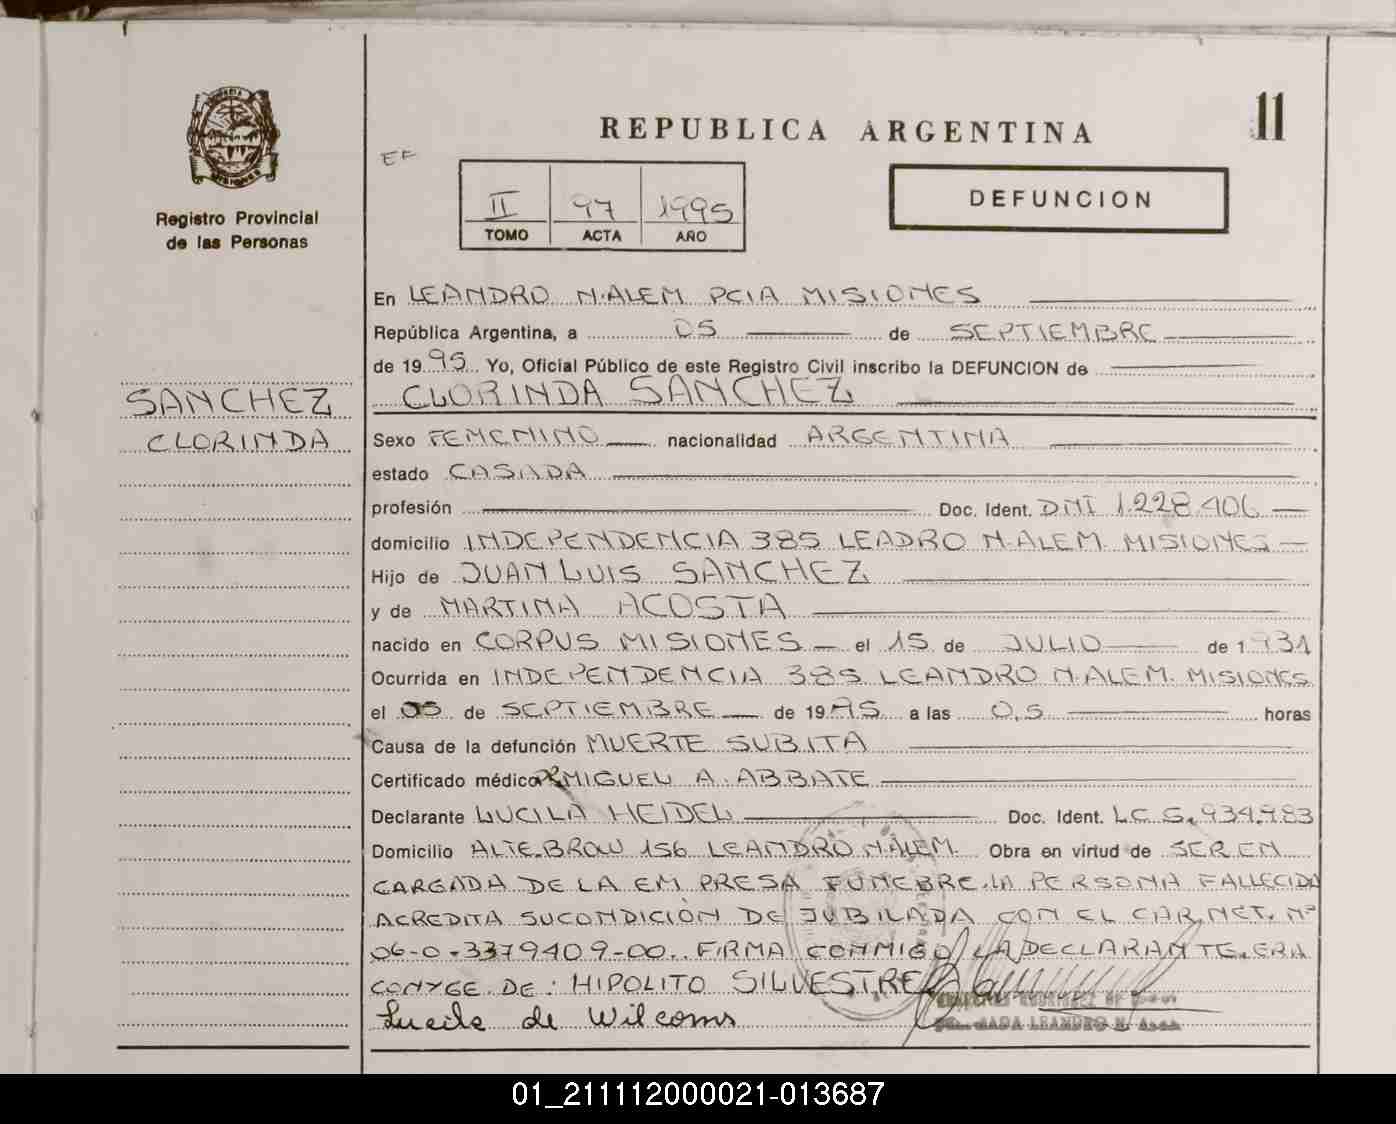 11
REPUBLICA ARGENTINA
EF
MISIONES
Registro Provincial
de las Personas
II 97 1995
TOMO ACTA AÑO
DEFUNCION
SANCHEZ
CLORINDA
En LEANDRO N.ALEM PCIA MISIONES
República Argentina, a 05 de SEPTIEMBRE
de 1995 Yo, Oficial Público de este Registro Civil inscribo la DEFUNCION de
CLORINDA SANCHEZ
Sexo FEMENINO nacionalidad ARGENTINA
estado CASADA
profesión Doc. Ident. DNI 1.228.406
domicilio INDEPENDENCIA 385 LEADRO N.ALEM. MISIONES
Hijo de JUAN LUIS SANCHEZ
y de MARTINA ACOSTA
nacido en CORPUS MISIONES el 15 de JULIO de 1931
Ocurrida en INDEPENDENCIA 385 LEANDRO N.ALEM. MISIONES
el 05 de SEPTIEMBRE de 1995 a las 0,5 horas
Causa de la defunción MUERTE SUBITA
Certificado médico MIGUEL A. ABBATE
Declarante LUCILA HEIDEL Doc. Ident. L.C 5.934.983
Domicilio ALTE.BROW 156 LEANDRO N.ALEM. Obra en virtud de SER EN
CARGADA DE LA EM PRESA FUNEBRE.LA PERSONA FALLECIDA
ACREDITA SU CONDICIÓN DE JUBILADA CON EL CAR.NET. Nº
06-0-3379409-00.. FIRMA CONMIGO LA DECLARANTE.ERA
CONYGE. DE: HIPOLITO SILVESTRE
Lucila de Wilcoms
LEANDRO N. Alem
01_211112000021-013687